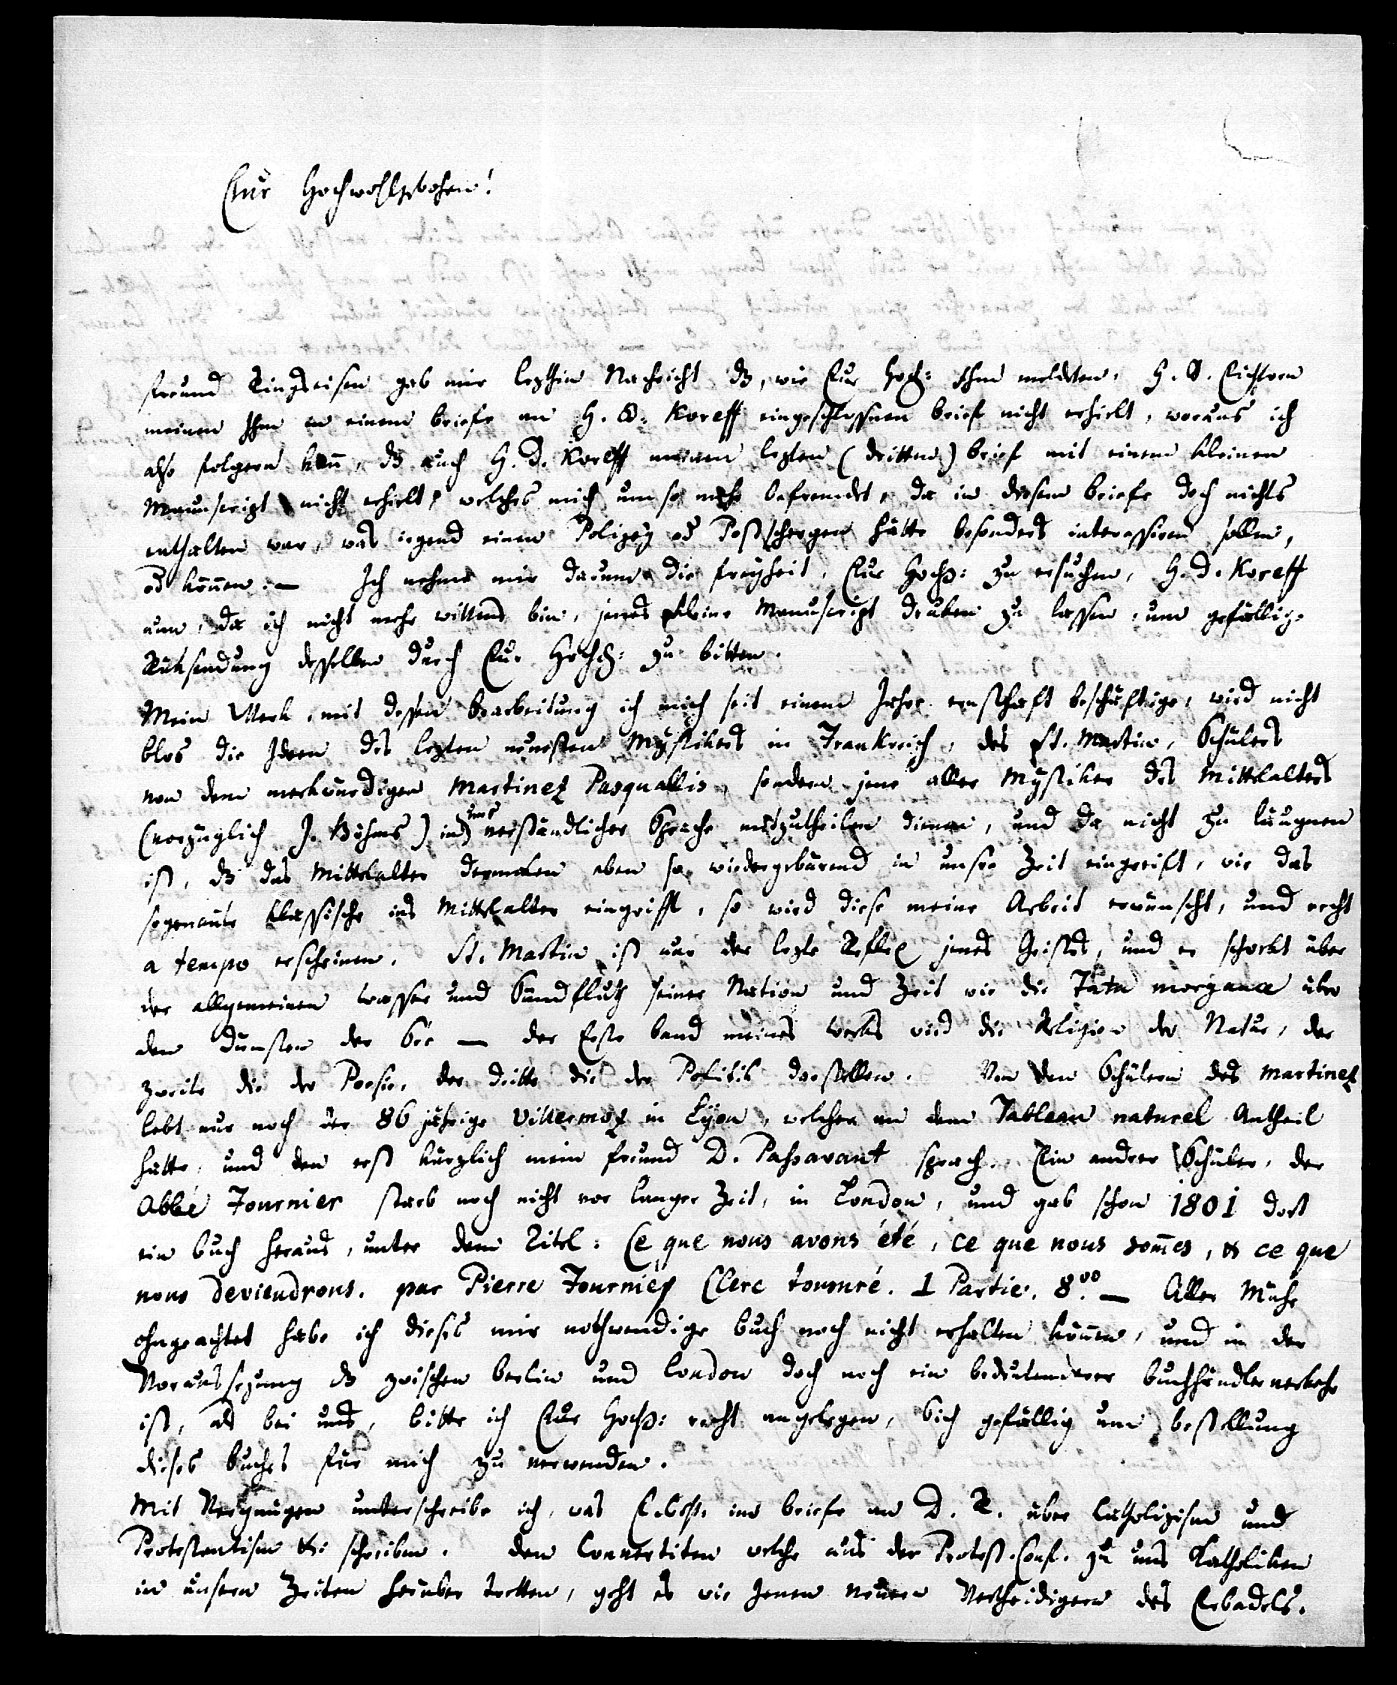 Eur Hochwohlgebohren!
Freund Ringseisen gab mir lezthin Nachricht dß, wie Eur Hoch: Ihm meldeten, H. D. Lichten
meinen Ihm in einem briefe an H. D. Koreff eingeschlossnen brief nicht erhielt, woraus ich
also folgern kañ, dß auch H. D. Koreff meinen lezten (dritten) brief mit einem kleinen
Manuscript nicht erhielt, welches mich um so mehr befremdet, da in diesem briefe doch nichts
enthalten war, was irgend einen Polizey od Postschergen hätte besonders interessiren sollen,
od köñen. — Ich nehme mir darum die freyheit, Eur Hoch: zu ersuchen, H. D. Koreff
um, da ich nicht mehr willens bin, jenes kleine Manuscript druken zu lassen, um gefällige
Rüksendung desselben durch Eur Hoch: zu bitten.
Mein Werk, mit dessen bearbeitung ich mich seit einem Jahre ernsthaft beschäftige, wird nicht
blos die Ideen des lezten neuesten Mystikers in Frankreich, des St. Martin, Schülers
von dem merkwürdigen Martinez Pasquallis, sondern jene aller Mystiker des Mittelalters
(vorzüglich J. Böhms) in uns verständlicher Sprache mitzutheilen dienen, und da nicht zu läugnen
ist, dß das Mittelalter dermalen eben so wiedergebärend in unsre Zeit eingreift, wie das
sogenante klassische ins Mittelalter eingriff, so wird diese meine Arbeit erwünscht, und recht
a tempo erscheinen. St. Martin ist nur der lezte Reflex jenes Geistes, und er schwebt über
der allgemeinen wasser und Sündfluth seiner Nation und Zeit wie die Fata morgana über
den Dünsten der See — der Erste band meines Werks wird die Religion der Natur, der
zweite die der Poesie, der dritte die der Politik darstellen. Von den Schülern des Martinez
lebt nur noch der 86 jährige Villermoz in Lyon, welcher an dem Tableau naturel Antheil
hatte, und den erst kürzlich mein freund D. Passavant sprach. Ein andrer Schüler, der
Abbé Fournier starb noch nicht vor langer Zeit, in London, und gab schon 1801 dort
ein buch heraus, unter dem Titel: Ce que nous avons été, ce que nous som̃es, & ce que
nous deviendrons. par Pierre Fourniez Clerc tonsuré. 1 Partie. 8.vo — Aller Mühe
ohngeachtet habe ich dieses mir nothwendige buch noch nicht erhalten köñen, und in der
Voraussezung dß zwischen Berlin und London doch noch ein bedeutenderer buchhändlerverkehr
ist, als bei uns, bitte ich Eur Hoch: recht angelegen, Sich gefällig um bestellung
dieses buches für mich zu verwenden.
Mit Vergnügen unterschreibe ich, was im briefe an D. R. über Catholizism und
Protestantism &: schreiben. Den Convertiten welche aus der Protest. Conf. zu uns Katholiken
in unsern Zeiten herüber tretten, geht es wie jenen neuern Vertheidigern des Erbadels.